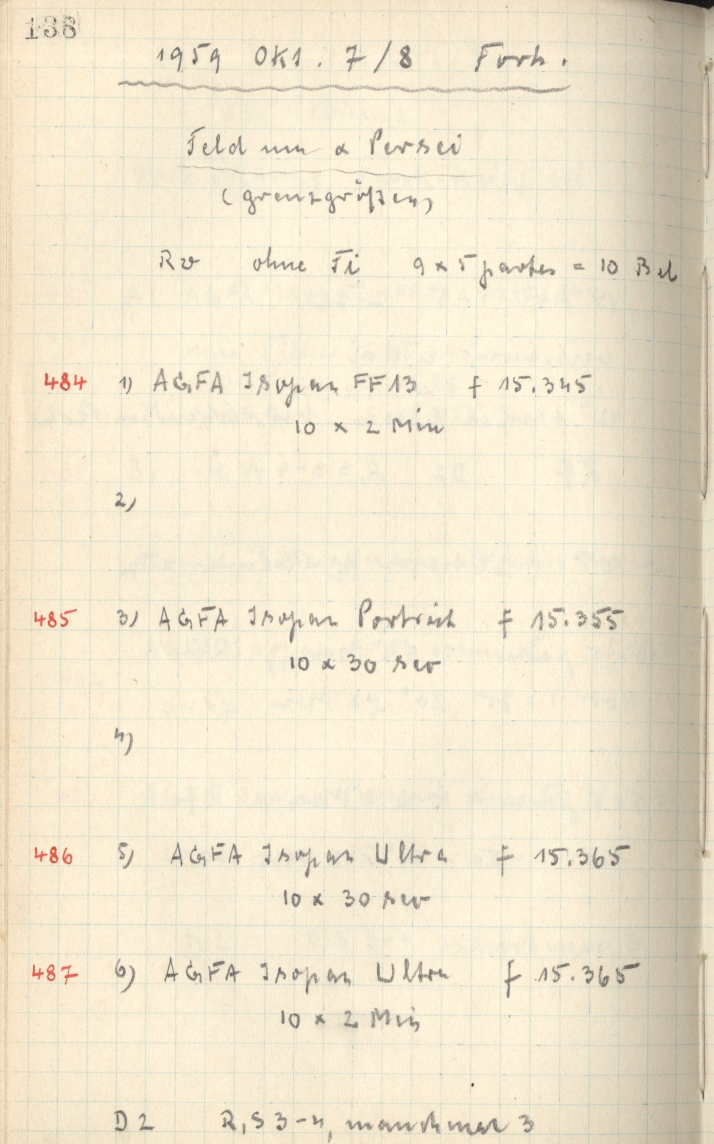 138
1959 Okt. 7/8 Forh.
Feld um α Persei
(Grenzgrößen)
ohne Fi 9 x 5 partes = 10 Bel
484 1) AGFA Isopan FF13 f 15.345
10 x 2 Min
2)
485 3) AGFA Isopan Porträt f 15.355
10 x 30 sec
4)
486 5) AGFA Isopan Ultra f 15.365
10 x 30 sec
487 6) AGFA Isopan Ultra f 15.365
10 x 2 Min
D2 R, S 3-4, manchmal 3